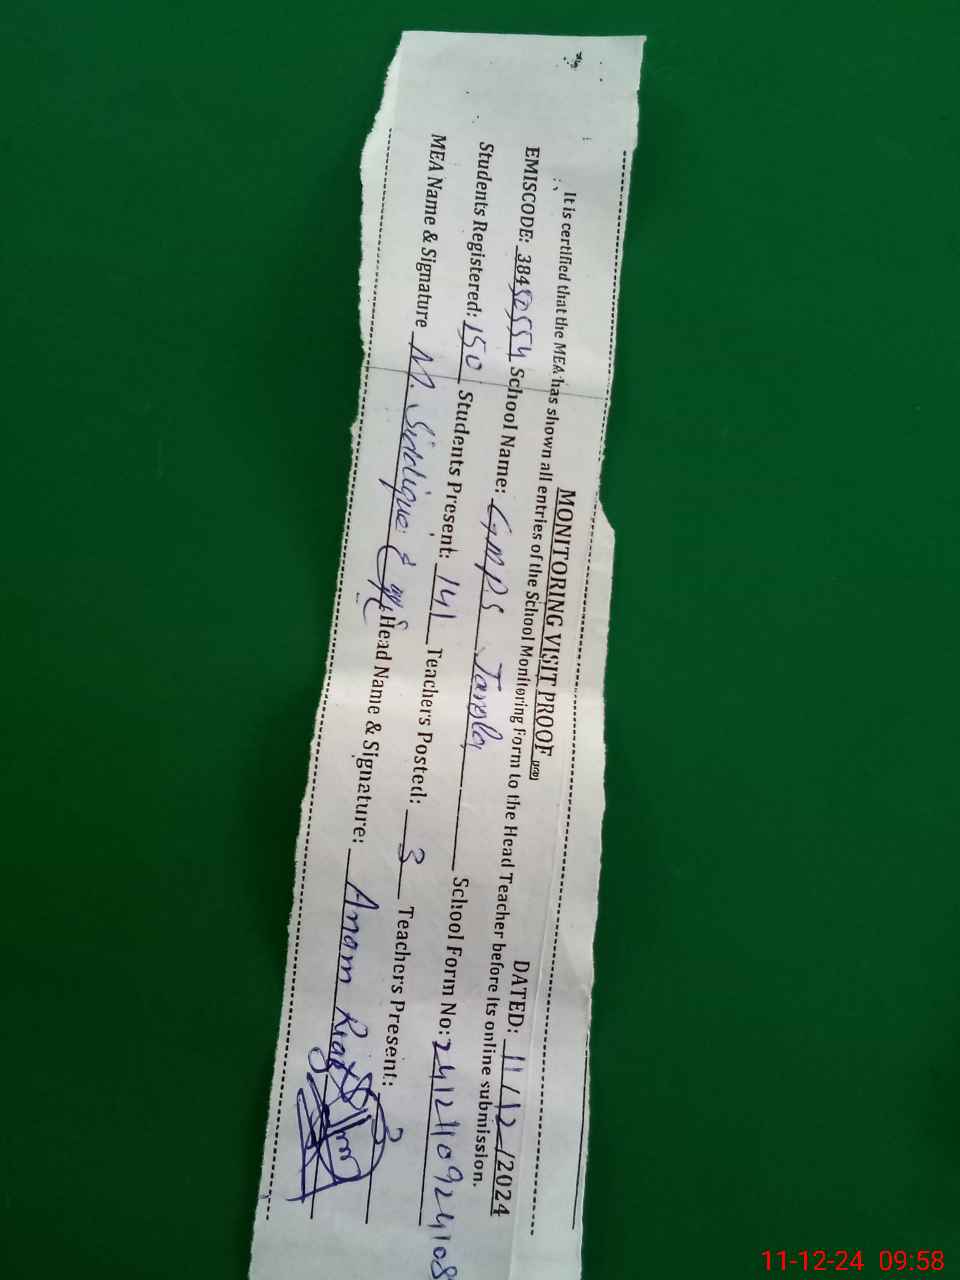 MONITORING VISIT PROOF (PEF)
DATED: 11/12/2024
It is certified that the MEA has shown all entries of the School Monitoring Form to the Head Teacher before its online submission.
EMISCODE: 38450554 School Name: GMPS School Form No: 24121109924108
Students Registered: 150 Students Present: 141 Teachers Posted: 3 Teachers Present: 3
MEA Name & Signature M. Siddique Head Name & Signature: Anam Riaz
11-12-24 09:58